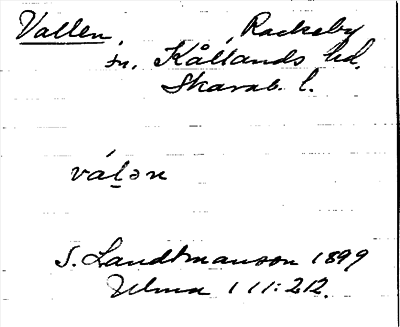 Vallen, Rackeby
sn, Kållands hd,
Skarab. l.
váḷən
S. Landtmanson 1899
Ulma 111:212.